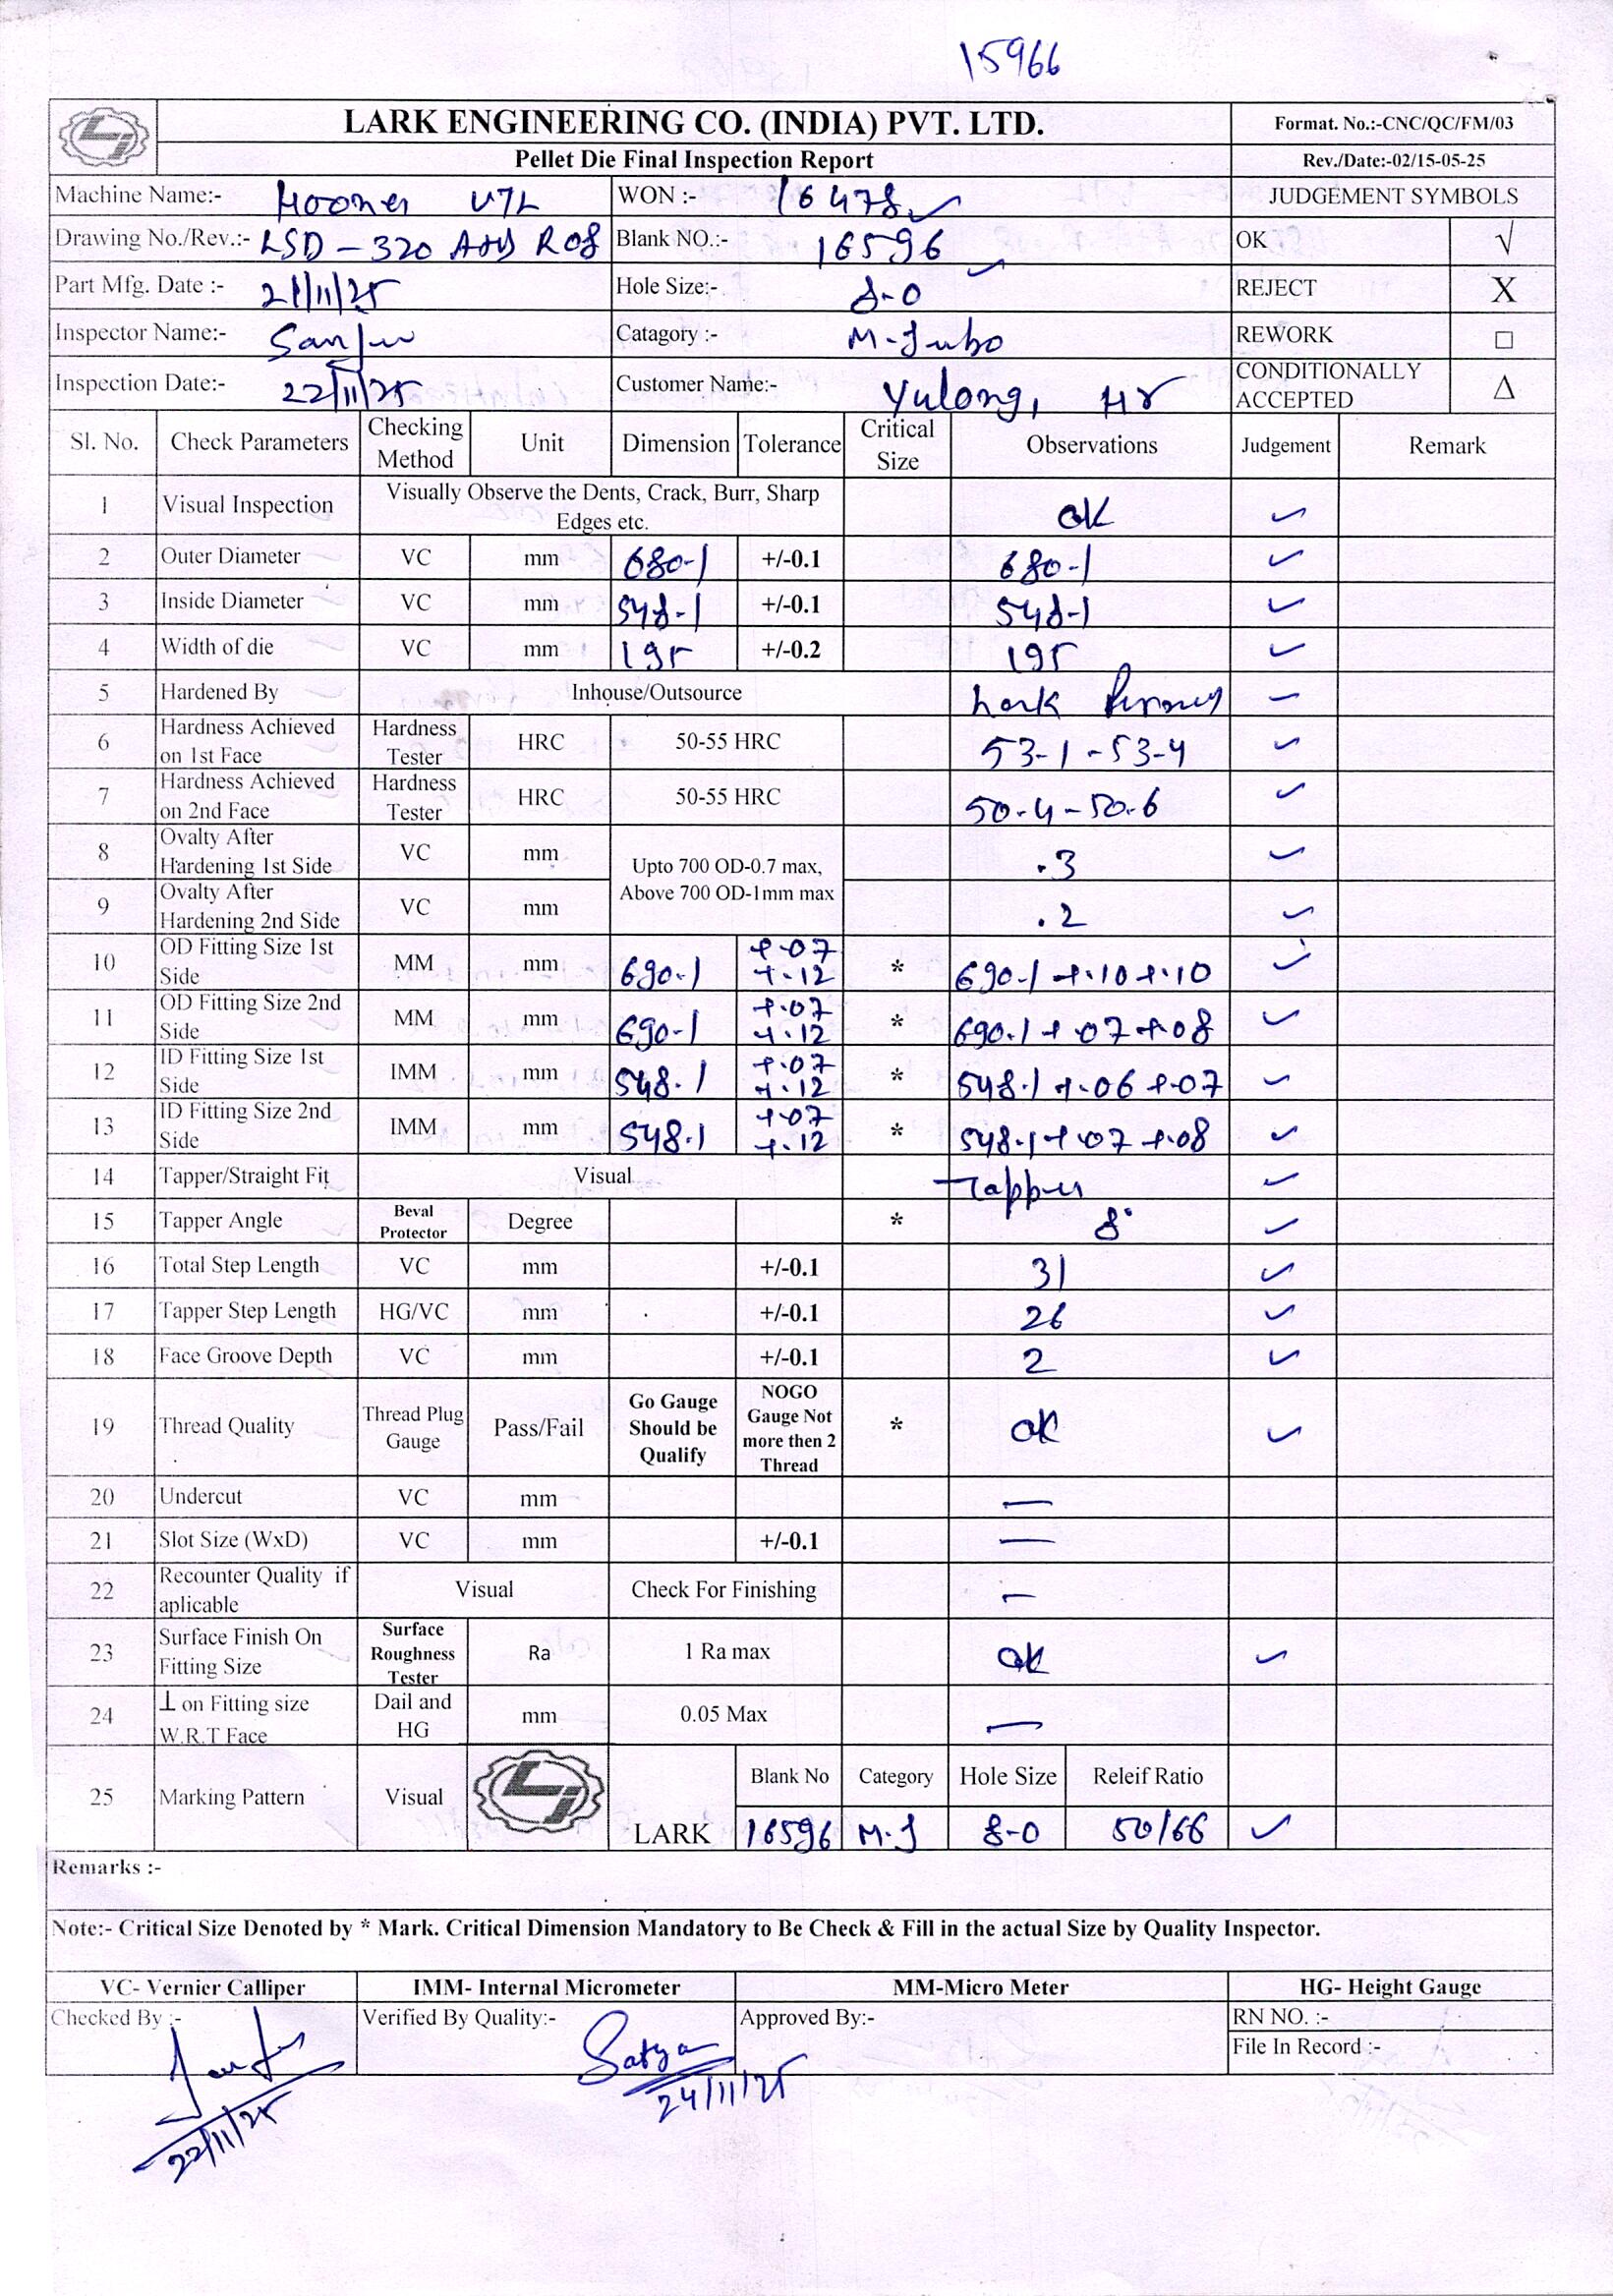 15966
LARK ENGINEERING CO. (INDIA) PVT. LTD. Format. No.:-CNC/QC/FM/03
Pellet Die Final Inspection Report Rev./Date:-02/15-05-25
Machine Name:- WON :- 16478 JUDGEMENT SYMBOLS
Drawing No./Rev.:- LSD-320 R08 Blank NO.:- 16596 OK √
Part Mfg. Date :- 21/11/25 Hole Size:- 8-0 REJECT X
Inspector Name:- Sanju Catagory :- REWORK □
Inspection Date:- 22/11/25 Customer Name:- Yulong, HR CONDITIONALLY ACCEPTED Δ
Sl. No. Check Parameters Checking Method Unit Dimension Tolerance Critical Size Observations Judgement Remark
1 Visual Inspection Visually Observe the Dents, Crack, Burr, Sharp Edges etc. OK ✓
2 Outer Diameter VC mm 680-1 +/-0.1 680-1 ✓
3 Inside Diameter VC mm 548-1 +/-0.1 548-1 ✓
4 Width of die VC mm 195 +/-0.2 195 ✓
5 Hardened By Inhouse/Outsource Lark
6 Hardness Achieved on 1st Face Hardness Tester HRC 50-55 HRC 53-1-53-4 ✓
7 Hardness Achieved on 2nd Face Hardness Tester HRC 50-55 HRC 50-4-50-6 ✓
8 Ovalty After Hardening 1st Side VC mm Upto 700 OD-0.7 max, Above 700 OD-1mm max .3 ✓
9 Ovalty After Hardening 2nd Side VC mm .2 ✓
10 OD Fitting Size 1st Side MM mm 690-1 +.07 +.12 * 690-1 +.10 +.10 ✓
11 OD Fitting Size 2nd Side MM mm 690-1 +.07 +.12 * 690.1 + 07 +.08 ✓
12 ID Fitting Size 1st Side IMM mm 548.1 +.07 +.12 * 548.1 +.06 +.07 ✓
13 ID Fitting Size 2nd Side IMM mm 548.1 +.07 +.12 * 548.1 + 07 +.08 ✓
14 Tapper/Straight Fit Visual Tapper ✓
15 Tapper Angle Beval Protector Degree * 8° ✓
16 Total Step Length VC mm +/-0.1 31 ✓
17 Tapper Step Length HG/VC mm +/-0.1 26 ✓
18 Face Groove Depth VC mm +/-0.1 2 ✓
19 Thread Quality Thread Plug Gauge Pass/Fail Go Gauge Should be Qualify NOGO Gauge Not more then 2 Thread * OK ✓
20 Undercut VC mm —
21 Slot Size (WxD) VC mm +/-0.1 —
22 Recounter Quality if aplicable Visual Check For Finishing —
23 Surface Finish On Fitting Size Surface Roughness Tester Ra 1 Ra max OK ✓
24 ⊥ on Fitting size W.R.T Face Dail and HG mm 0.05 Max —
25 Marking Pattern Visual LARK Blank No Category Hole Size Releif Ratio
16596 M.J 8-0 50/66 ✓
Remarks :-
Note:- Critical Size Denoted by * Mark. Critical Dimension Mandatory to Be Check & Fill in the actual Size by Quality Inspector.
VC- Vernier Calliper IMM- Internal Micrometer MM-Micro Meter HG- Height Gauge
Checked By :- Verified By Quality:- Satya Approved By:- RN NO. :-
File In Record :-
22/11/25 24/11/25